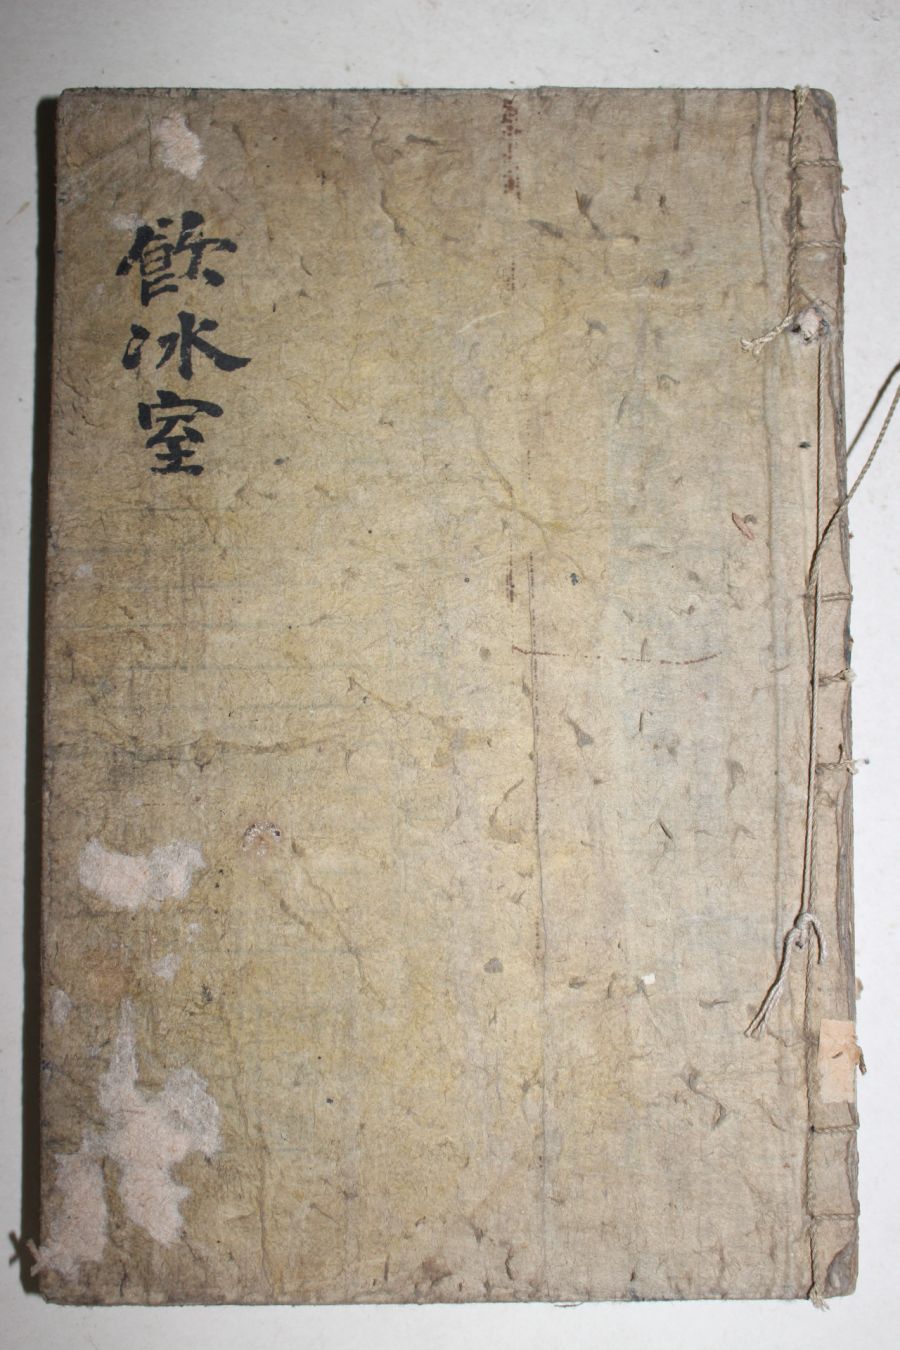 飮冰室